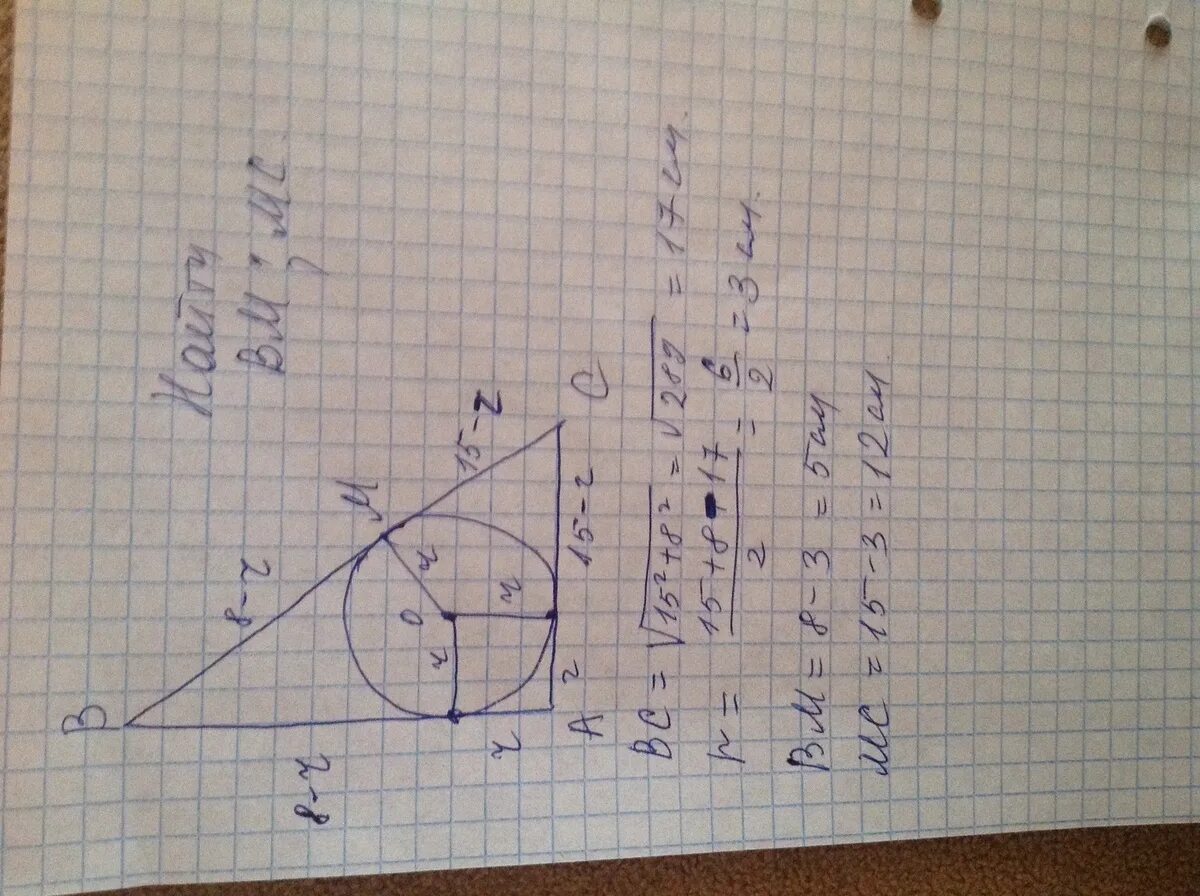 Найти
BM; MC
B
8-r
8-r
M
15-r
O
r
r
r
r
A
r
15-r
C
BC = √15²+8² = √289 = 17 см.
r = 15+8-17 / 2 = 6/2 = 3 см.
BM = 8-3 = 5 см
MC = 15-3 = 12 см